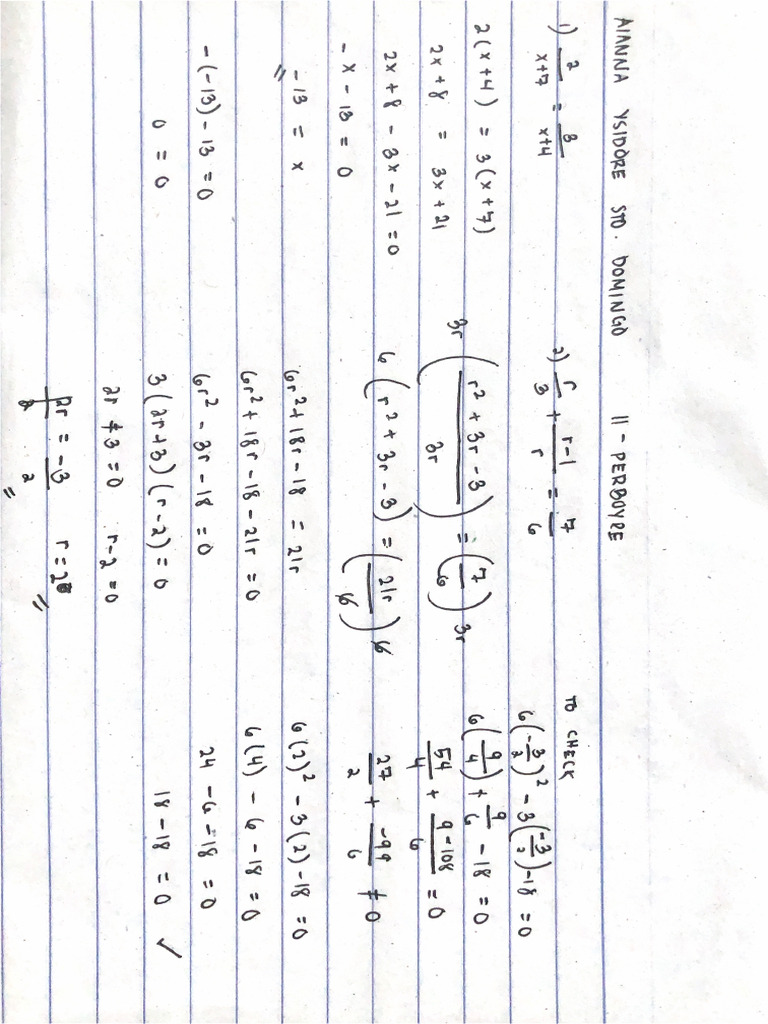 AIANNA YSIDORE STO. DOMINGO 11 - PERBOYRE
1) 2/x+7 = 8/x+4
2(x+4) = 3(x+7)
2x+8 = 3x+21
2x+8 - 3x - 21 = 0
-x - 13 = 0
-13 = x
-(-13) - 13 = 0
0 = 0
2) r/3 + r-1/r = 7/6
3r (r² + 3r - 3/3r) = (7/6) 3r
6 (r² + 3r - 3) = (21r/6) 6
6r² + 18r - 18 = 21r
6r² + 18r - 18 - 21r = 0
6r² - 3r - 18 = 0
3(2r+3)(r-2) = 0
2r + 3 = 0 r - 2 = 0
2r/2 = -3/2 r = 2
TO CHECK
6(-3/2)² - 3(-3/2) - 18 = 0
6(9/4) + 9/6 - 18 = 0
54/4 + 9-108/6 = 0
27/2 + -99/6 ≠ 0
6(2)² - 3(2) - 18 = 0
6(4) - 6 - 18 = 0
24 - 6 - 18 = 0
18 - 18 = 0 ✓